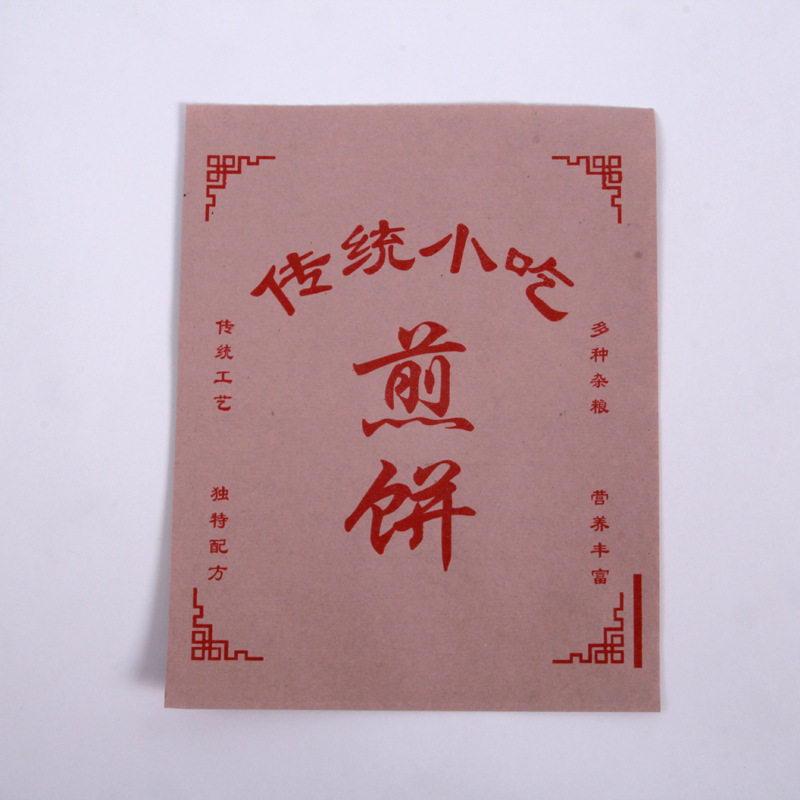 传统小吃
煎饼
传统工艺
独特配方
多种杂粮
营养丰富